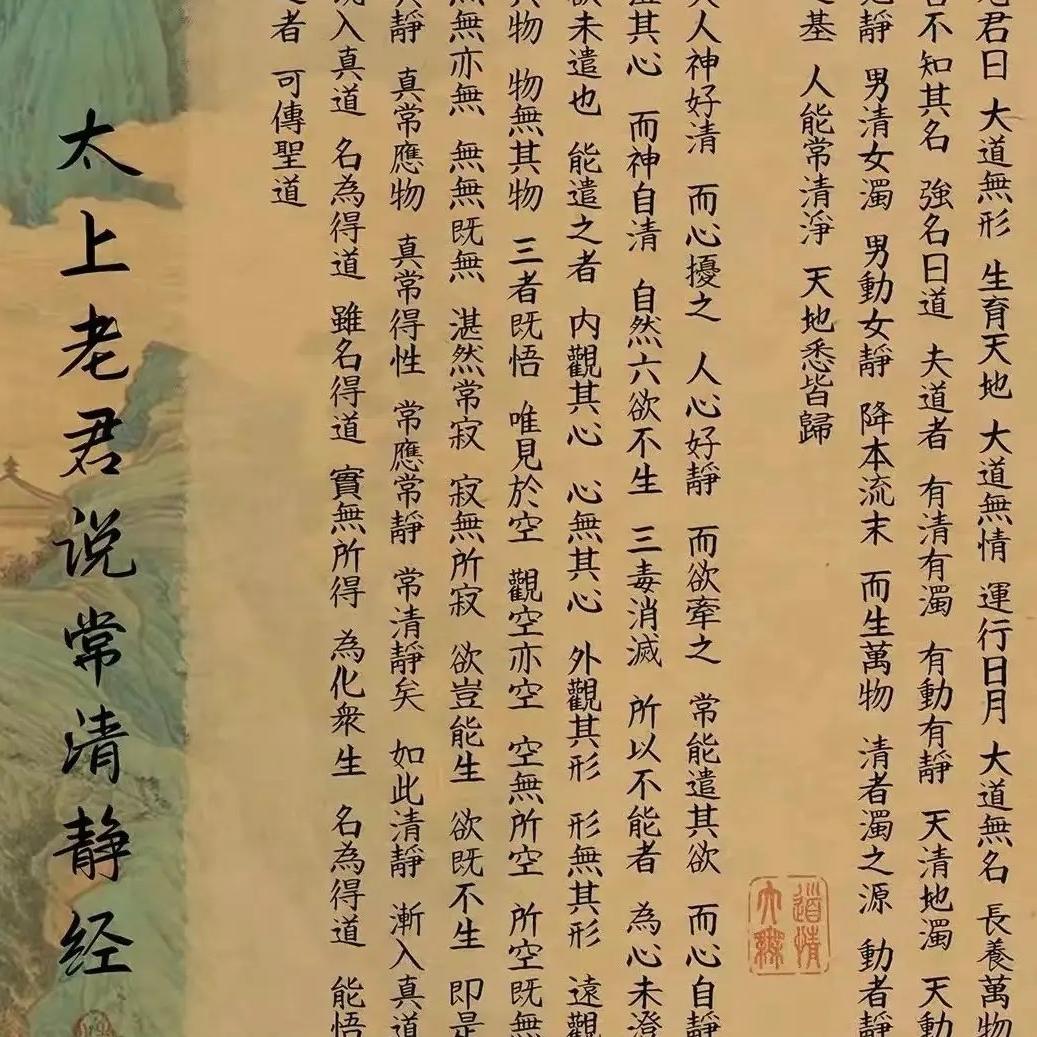 君曰 大道無形 生育天地 大道無情 運行日月 大道無名 長養萬物
不知其名 強名曰道 夫道者 有清有濁 有動有靜 天清地濁 天動
靜 男清女濁 男動女靜 降本流末 而生萬物 清者濁之源 動者靜
之基 人能常清淨 天地悉皆歸
道情
大無
人神好清 而心擾之 人心好靜 而欲牽之 常能遣其欲 而心自靜
其心 而神自清 自然六欲不生 三毒消滅 所以不能者 為心未澄
欲未遣也 能遣之者 內觀其心 心無其心 外觀其形 形無其形 遠觀
其物 物無其物 三者既悟 唯見於空 觀空亦空 空無所空 所空既無
無無亦無 無無既無 湛然常寂 寂無所寂 欲豈能生 欲既不生 即是
真靜 真常應物 真常得性 常應常靜 常清靜矣 如此清靜 漸入真道
既入真道 名為得道 雖名得道 實無所得 為化衆生 名為得道 能悟
之者 可傳聖道
太上老君说常清静经